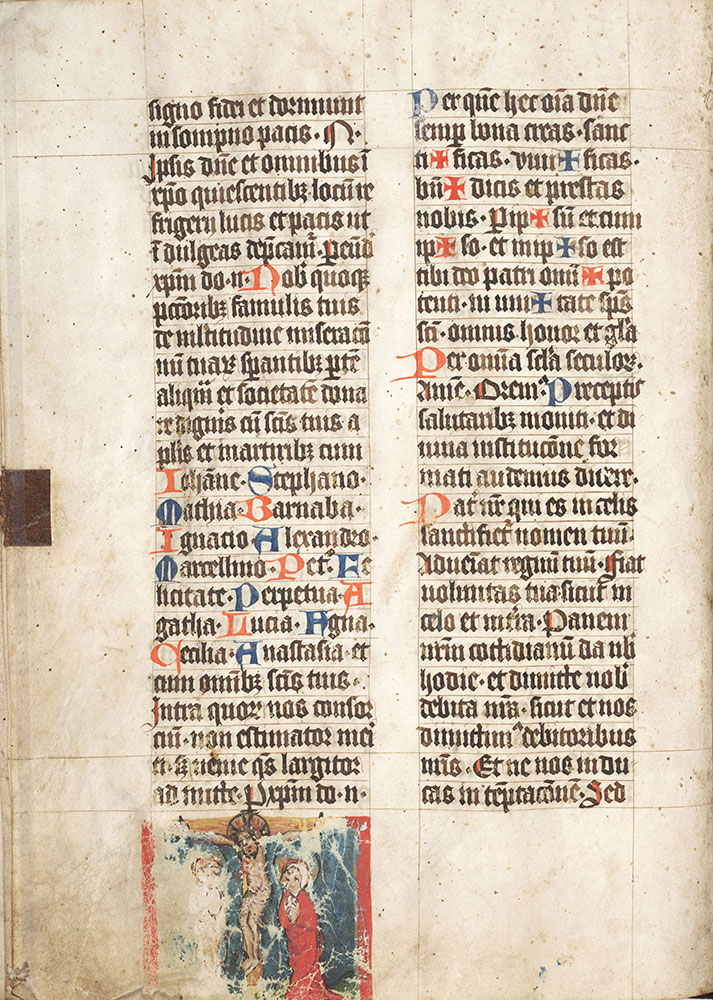 signo fidei et dormiunt
in sompno pacis · N ·
Ipsis dn̄e et omnibus ī
xp̄o quiescentibꝫ locū re
frigerii lucis et pacis ut
ī dulgeas dep̄cam̄ · ꝑ eund̄
xp̄m do · n · Nob̄ quoqꝫ
pc̄coribꝫ famulis tuis
de m̄ltitudine miseracōn
nū tuaꝝ sꝑantibꝫ ꝑtē
aliquā et societatē dona
re digneris cū scīs tuis a
plīs et martiribꝫ cum
Iohāne · Stephano ·
Mathia · Barnaba ·
Ignacio · Alexandro ·
Marcellino · Pet° · Fe
licitate · Perpetua · A
gatha · Lucia · Agna ·
Cecilia · Anastasia · et
cum om̄ibꝫ scīs tuis ·
Intra quoꝝ nos consor
ciū · non estimator mei
ti · sꝫ venie qs̄ largitor
ad mitte · ꝑ xp̄m do · n ·
Per quē hec oīa dn̄e
semꝑ bona creas · sanc
ti ✠ ficas · vivi ✠ ficas ·
bn̄ ✠ dicis et prestas
nobis · Per ip ✠ sū et cum
ip ✠ so · et in ip ✠ so est
tibi deo patri om̄i ✠ po
tenti · in uni ✠ tate sp̄s
scī · omnis honor et gl̄a
Per omīa sc̄la seculoꝝ ·
Amē · Orem° Preceptis
salutaribꝫ moniti · et di
uina institucōne for
mati audemus dicere ·
Pat̄ nr̄ qui es in celis
sanctificet̄ nomen tuū ·
Adueniat regnū tuū · Fiat
voluntas tua sicut in
celo et in tr̄a · Panem
nr̄m cotidianū da nb̄i
hodie · et dimitte nobī
debita nr̄a · sicut et nos
dimittim° debitoribus
nr̄is · Et ne nos indu
cas in temptacōne · Sed